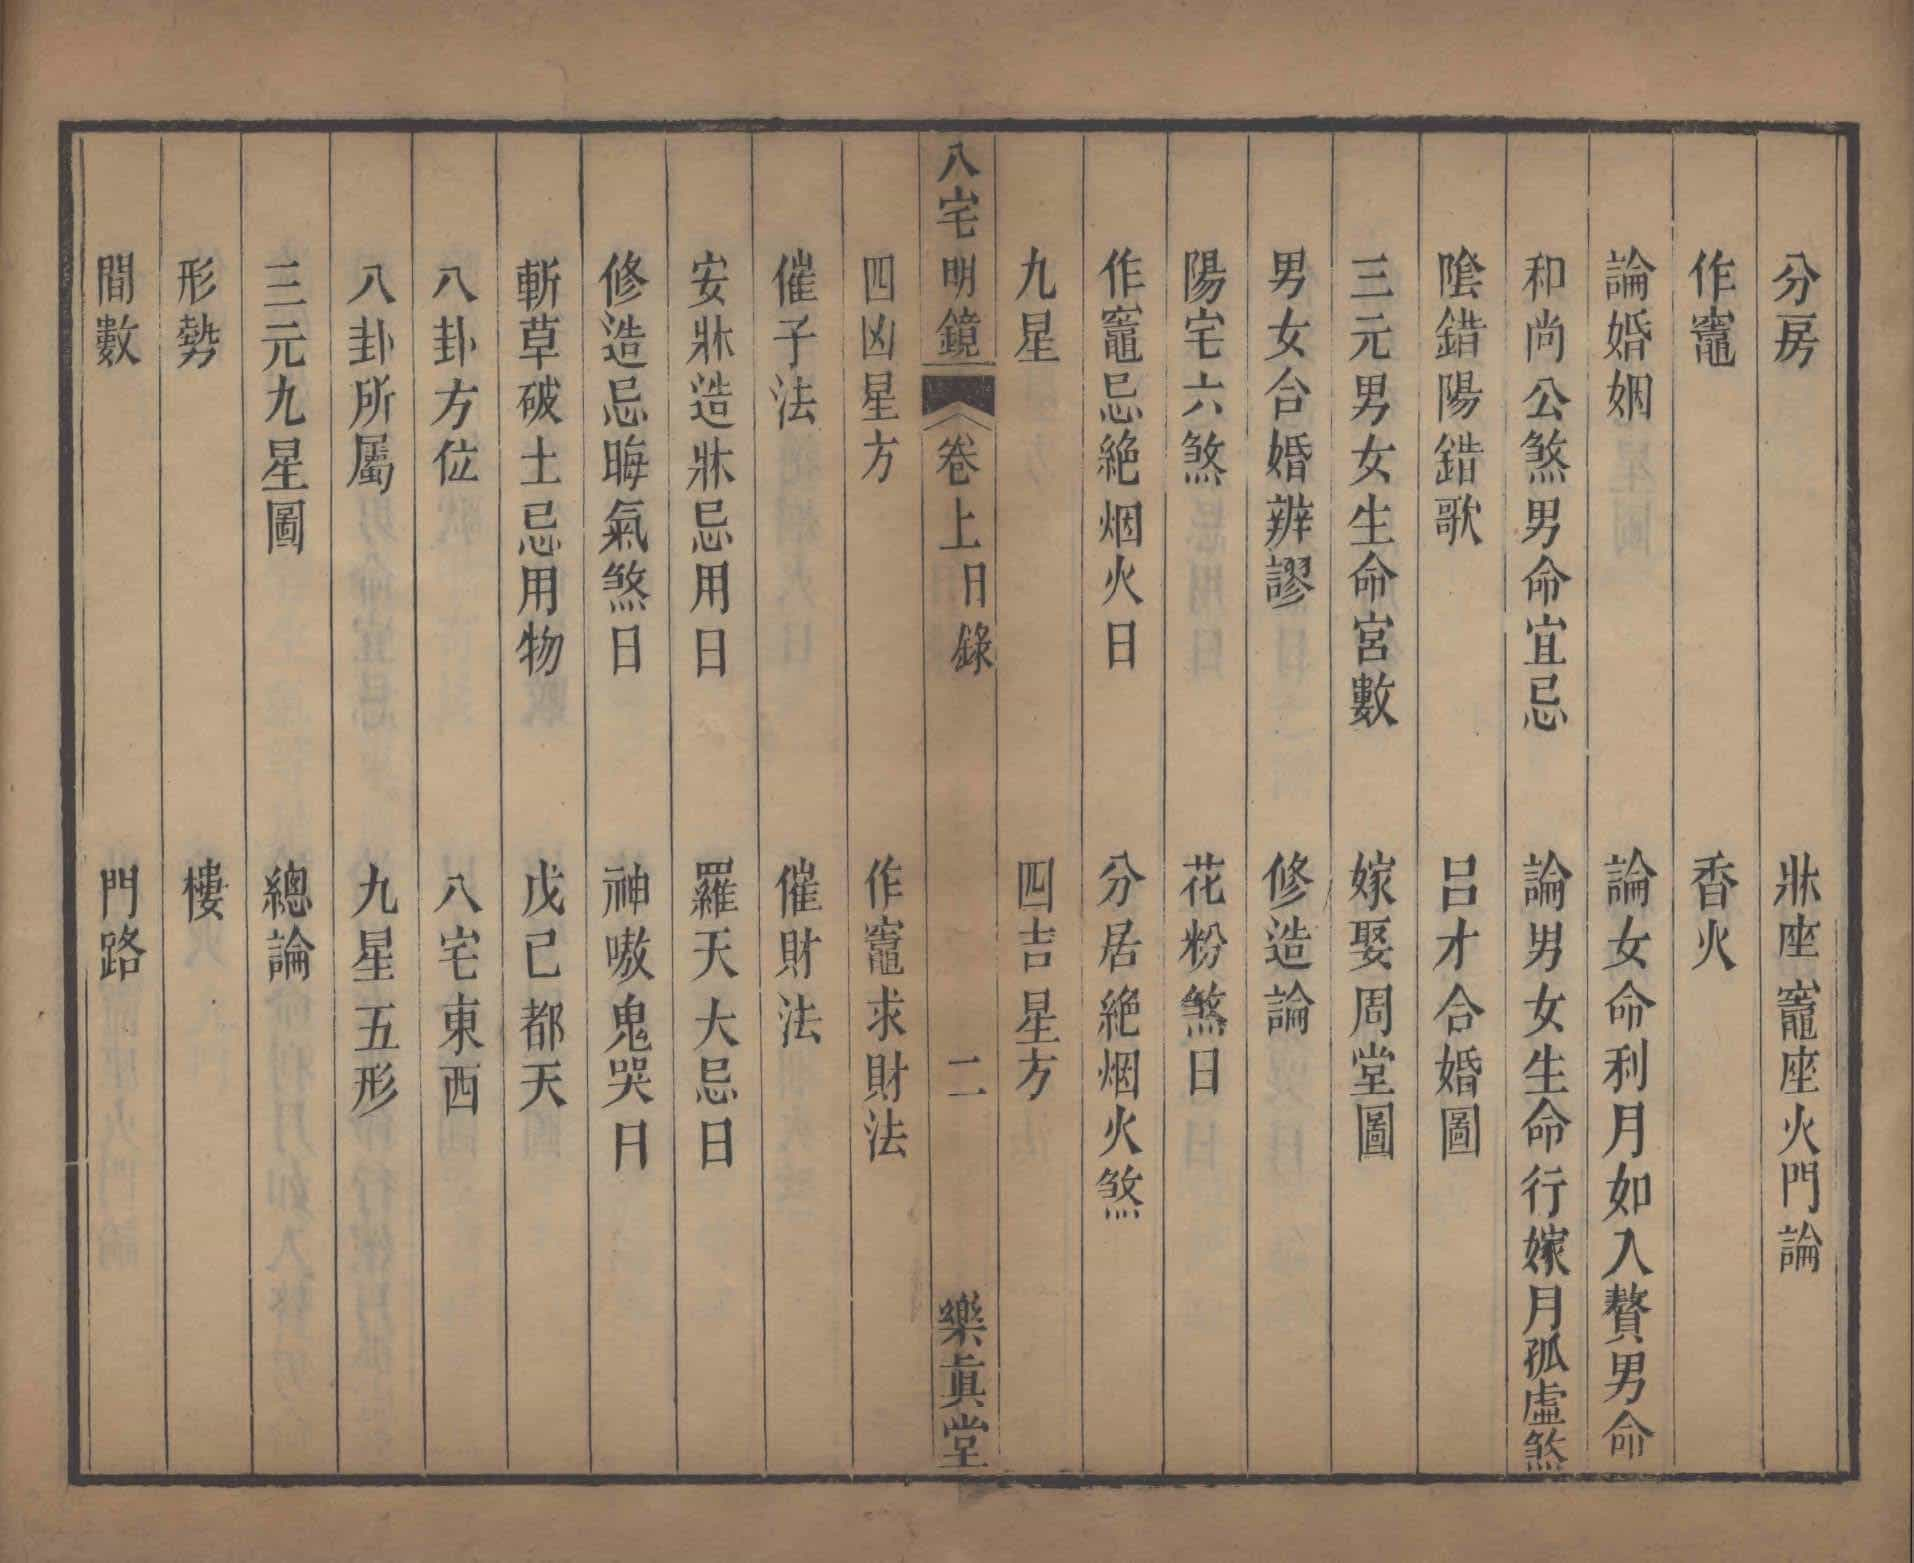 分房　牀座竈座火門論
作竈　香火
論婚姻　論女命利月如入贅男命
和尚公煞男命宜忌　論男女生命行嫁月孤虛煞
陰錯陽錯歌　呂才合婚圖
三元男女生命宮數　嫁娶周堂圖
男女合婚辨謬　修造論
陽宅六煞　花粉煞日
作竈忌絶烟火日　分居絶烟火煞
九星　四吉星方
八宅明鏡　卷上目錄　二　樂眞堂
四凶星方　作竈求財法
催子法　催財法
安牀造牀忌用日　羅天大忌日
修造忌晦氣煞日　神嗷鬼哭日
斬草破土忌用物　戊己都天
八卦方位　八宅東西
八卦所屬　九星五形
三元九星圖　總論
形勢　樓
間數　門路